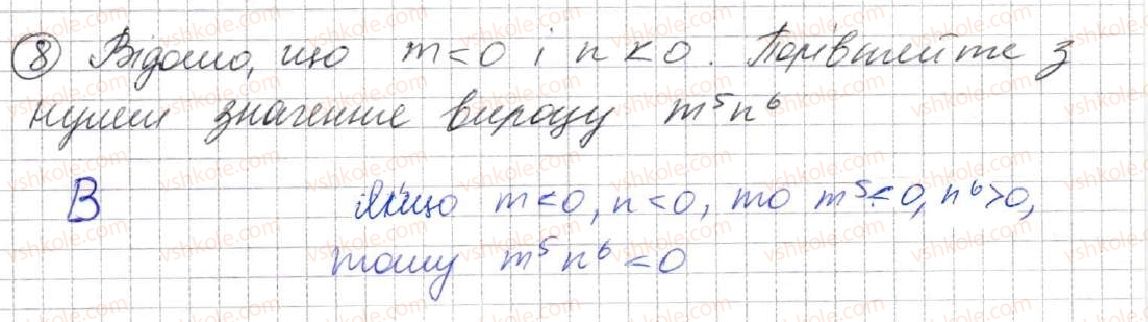 8 Відомо, що m < 0 і n < 0. Порівняйте з
нулем значення виразу m⁵n⁶
В Якщо m < 0, n < 0, то m⁵ < 0, n⁶ > 0,
тому m⁵n⁶ < 0